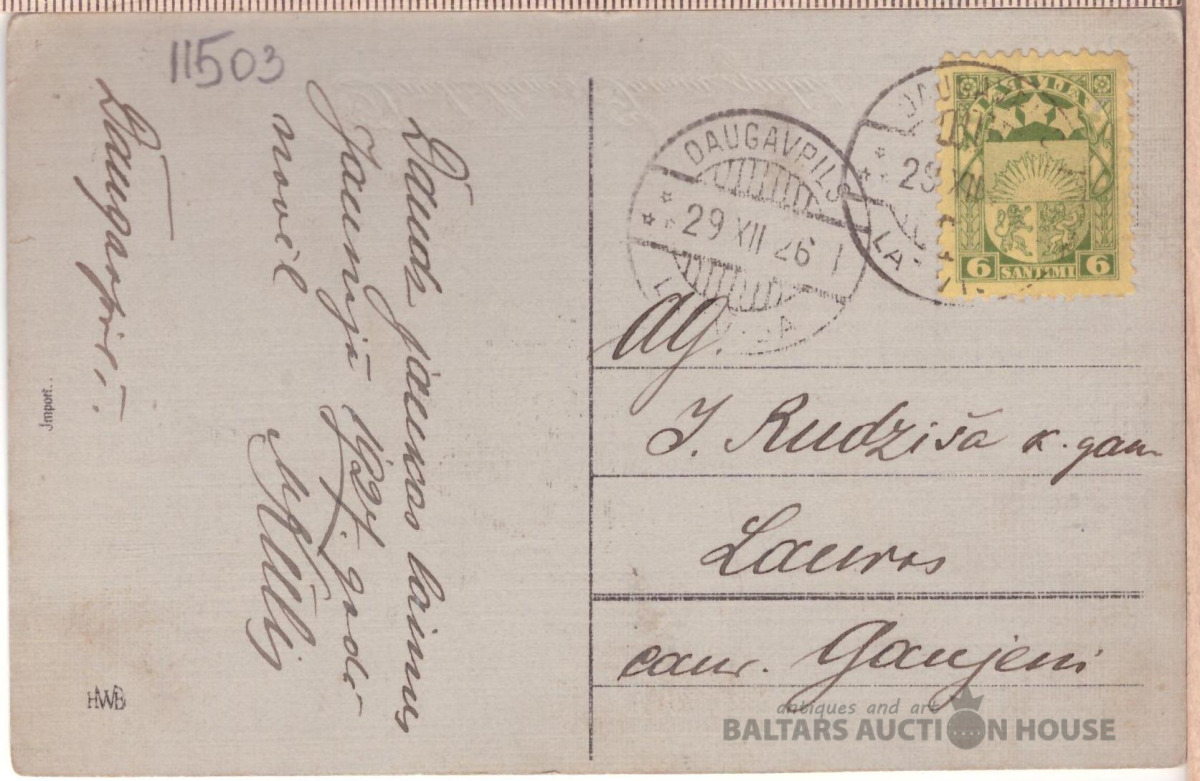 11503
Daudz jaukas laimes
Jaunajā 1927. gadā
novēl
Daugavpilī.
Import..
HWB
DAUGAVPILS
29 XII 26
LATVIJA
DAUGAVPILS
29 XII
LATVIJA
LATVIJA
6 SANTIMI 6
Ag.
J. Rudziša k. gam
Lauros
caur. Gaujeni
antiques and art
BALTARS AUCTION HOUSE